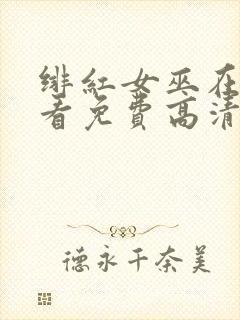 绯红女巫在
看免费高清
德永千奈美